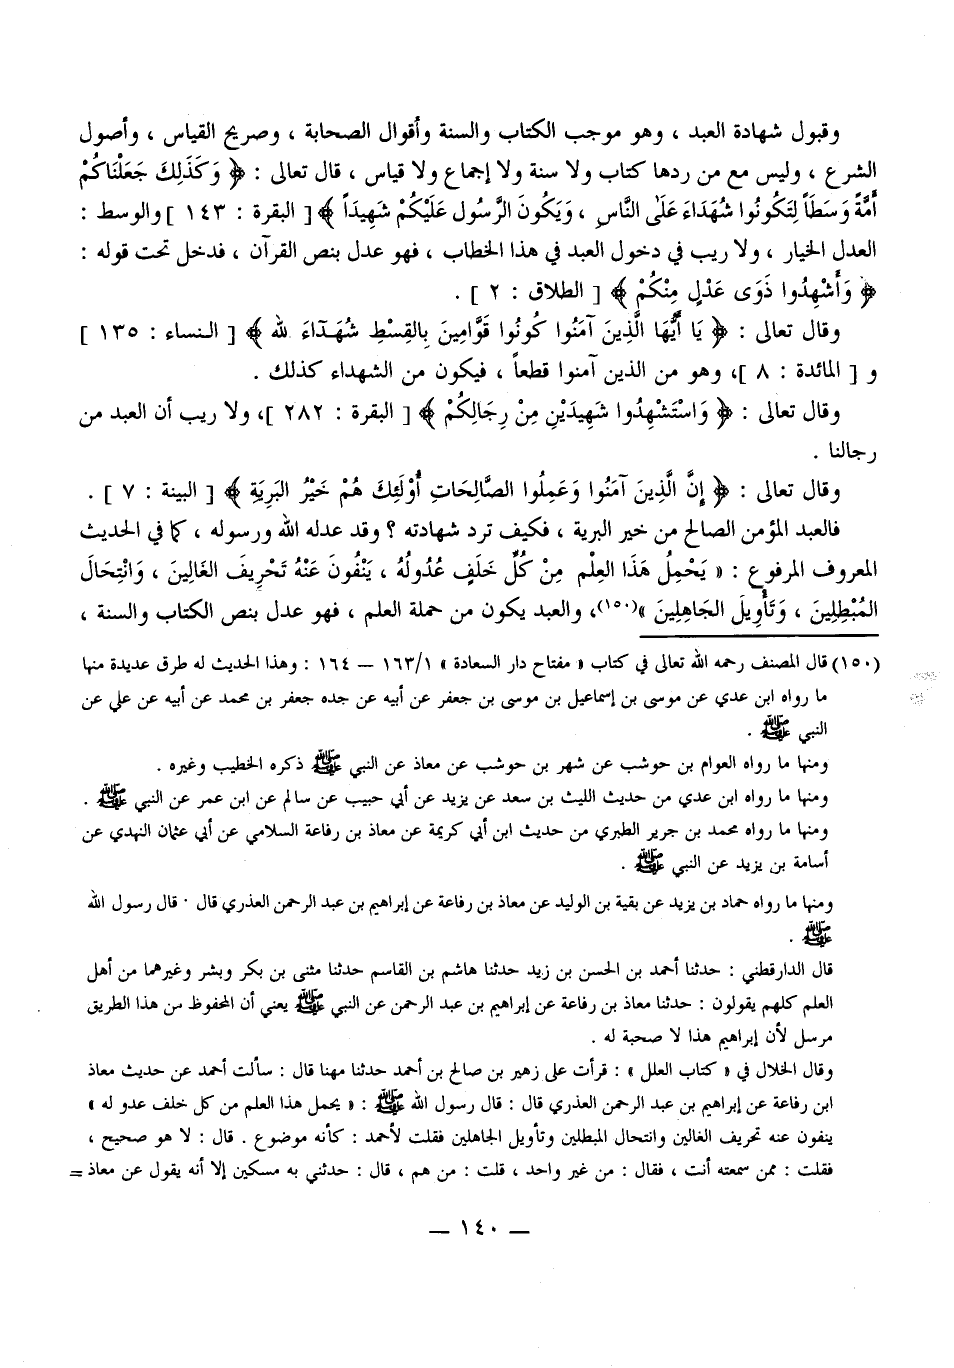 وقبول شهادة العبد ، وهو موجب الكتاب والسنة وأقوال الصحابة ، وصريح القياس ، وأصول
الشرع ، وليس مع من ردها كتاب ولا سنة ولا إجماع ولا قياس ، قال تعالى : ﴿ وَكَذَلِكَ جَعَلْنَاكُمْ
أُمَّةً وَسَطَاً لِتَكُونُوا شُهَدَاءَ عَلَى النَّاسِ ، وَيَكُونَ الرَّسُول عَلَيْكُمْ شَهِيدَاً ﴾ [ البقرة : ١٤٣ ] والوسط :
العدل الخيار ، ولا ريب في دخول العبد في هذا الخطاب ، فهو عدل بنص القرآن ، فدخل تحت قوله :
﴿ وَأَشْهِدُوا ذَوَى عَدْلٍ مِنْكُمْ ﴾ [ الطلاق : ٢ ] .
وقال تعالى : ﴿ يَا أَيُّهَا الَّذِينَ آمَنُوا كُونُوا قَوَّامِينَ بِالقِسْطِ شُهَـدَاءَ للهِ ﴾ [ النساء : ١٣٥ ]
و [ المائدة : ٨ ]، وهو من الذين آمنوا قطعاً ، فيكون من الشهداء كذلك .
وقال تعالى : ﴿ وَاسْتَشْهِدُوا شَهِيدَيْنِ مِنْ رِجَالِكُمْ ﴾ [ البقرة : ٢٨٢ ]، ولا ريب أن العبد من
رجالنا .
وقال تعالى : ﴿ إِنَّ الَّذِينَ آمَنُوا وَعَمِلُوا الصَّالِحَاتِ أُوْلَئِكَ هُمْ خَيْرُ البَرِيَةِ ﴾ [ البينة : ٧ ] .
فالعبد المؤمن الصالح من خير البرية ، فكيف ترد شهادته ؟ وقد عدله الله ورسوله ، كما في الحديث
المعروف المرفوع : « يَحْمِلُ هَذَا العِلْمِ مِنْ كُلِّ خَلَفٍ عُدُولُهُ ، يَنْفُونَ عَنْهُ تَحْرِيفَ الغَالِينَ ، وَانْتِحَالَ
المُبْطِلِينَ ، وَتَأْوِيلَ الجَاهِلِينَ »(١٥٠)، والعبد يكون من حملة العلم ، فهو عدل بنص الكتاب والسنة ،
(١٥٠) قال المصنف رحمه الله تعالى في كتاب « مفتاح دار السعادة » ١٦٣/١ — ١٦٤ : وهذا الحديث له طرق عديدة منها
ما رواه ابن عدي عن موسى بن إسماعيل بن موسى بن جعفر عن أبيه عن جده جعفر بن محمد عن أبيه عن علي عن
النبي ﷺ .
ومنها ما رواه العوام بن حوشب عن شهر بن حوشب عن معاذ عن النبي ﷺ ذكره الخطيب وغيره .
ومنها ما رواه ابن عدي من حديث الليث بن سعد عن يزيد عن أبي حبيب عن سالم عن ابن عمر عن النبي ﷺ .
ومنها ما رواه محمد بن جرير الطبري من حديث ابن أبي كريمة عن معاذ بن رفاعة السلامي عن أبي عثمان النهدي عن
أسامة بن يزيد عن النبي ﷺ .
ومنها ما رواه حماد بن يزيد عن بقية بن الوليد عن معاذ بن رفاعة عن إبراهيم بن عبد الرحمن العذري قال · قال رسول الله
ﷺ .
قال الدارقطني : حدثنا أحمد بن الحسن بن زيد حدثنا هاشم بن القاسم حدثنا مثنى بن بكر وبشر وغيرهما من أهل
العلم كلهم يقولون : حدثنا معاذ بن رفاعة عن إبراهيم بن عبد الرحمن عن النبي ﷺ يعني أن المحفوظ من هذا الطريق
مرسل لأن إبراهيم هذا لا صحبة له .
وقال الخلال في « كتاب العلل » : قرأت على زهير بن صالح بن أحمد حدثنا مهنا قال : سألت أحمد عن حديث معاذ
ابن رفاعة عن إبراهيم بن عبد الرحمن العذري قال : قال رسول الله ﷺ : « يحمل هذا العلم من كل خلف عدو له »
ينفون عنه تحريف الغالين وانتحال المبطلين وتأويل الجاهلين فقلت لأحمد : كأنه موضوع . قال : لا هو صحيح ،
فقلت : ممن سمعته أنت ، فقال : من غير واحد ، قلت : من هم ، قال : حدثني به مسكين إلا أنه يقول عن معاذ =
— ١٤٠ —